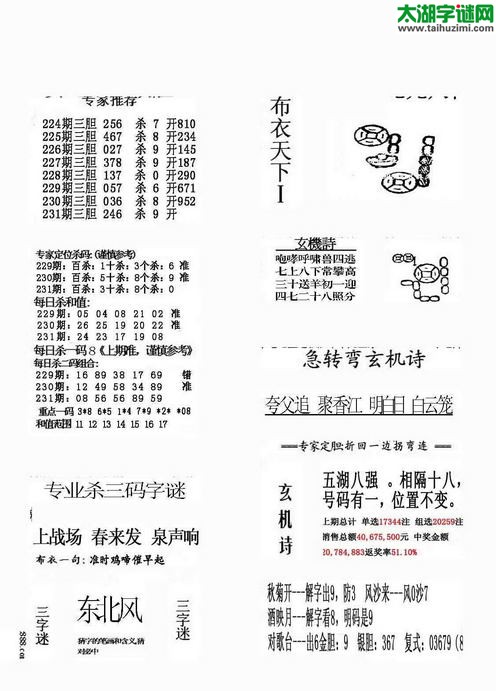 太湖字谜网
www.taihuzimi.com
专家推荐
224期三胆 256 杀 7 开810
225期三胆 467 杀 8 开234
226期三胆 027 杀 9 开145
227期三胆 378 杀 9 开187
228期三胆 137 杀 0 开290
229期三胆 057 杀 6 开671
230期三胆 036 杀 8 开952
231期三胆 246 杀 9 开
专家定位杀码:(谨慎参考)
229期: 百杀: 1十杀: 3个杀: 6 准
230期: 百杀: 5十杀: 8个杀: 9 准
231期: 百杀: 3十杀: 8个杀: 0
每日杀和值:
229期: 05 04 08 21 02 准
230期: 26 25 19 20 22 准
231期: 24 23 17 19 08
每日杀一码8《上期准, 谨慎参考》
每日杀二码组合:
229期: 16 89 38 17 69 错
230期: 12 49 58 34 89 准
231期: 08 56 56 89 59
重点一码 3*8 6*5 1*4 7*9 *2* *08
和值范围 11 12 13 14 15 16 17
专业杀三码字谜
上战场 春来发 泉声响
布衣一句: 准时鸡啼催早起
三字迷
东北风
猜字的笔画和含义,猜
对必中
三字迷
布衣天下I
玄機詩
咆哮呼啸兽四逃
七上八下常攀高
三十送羊初一迎
四七二十八照分
急转弯玄机诗
夸父追 聚香江 明白日 白云笼
===专家定胆折回一边拐弯连===
玄机诗
五湖八强 。相隔十八,
号码有一, 位置不变。
上期总计 单选17344注 组选20259注
销售总额40,675,500元 中奖金额
20,784,883返奖率51.10%
秋菊开---解字出9, 防3 风沙来---风0沙7
酒映月---解字看8, 明码是9
对歌台---出6金胆: 9 银胆: 367 复式: 03679 (8